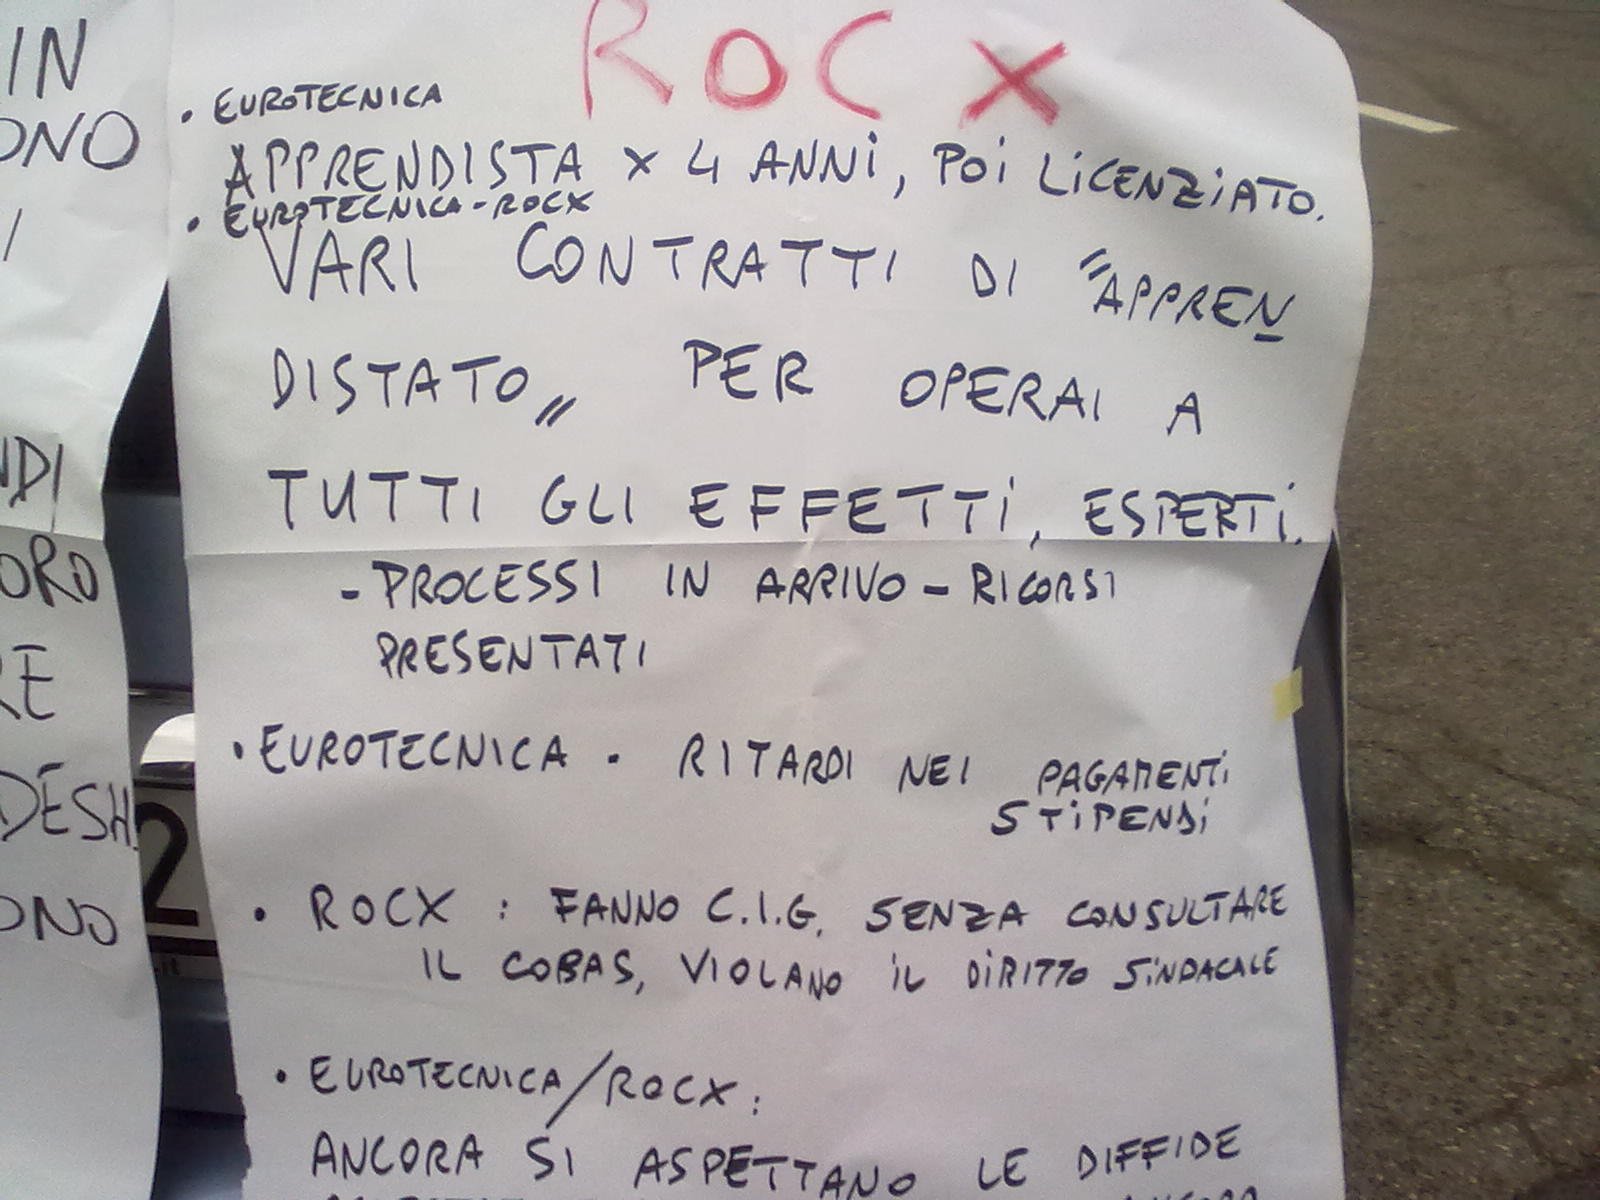 ROCX
• EUROTECNICA
APPRENDISTA × 4 ANNI, POI LICENZIATO.
• EUROTECNICA-ROCX
VARI CONTRATTI DI "APPREN
DISTATO" PER OPERAI A
TUTTI GLI EFFETTI, ESPERTI.
- PROCESSI IN ARRIVO - RICORSI
PRESENTATI
• EUROTECNICA - RITARDI NEI PAGAMENTI
STIPENDI
• ROCX : FANNO C.I.G. SENZA CONSULTARE
IL COBAS, VIOLANO IL DIRITTO SINDACALE
• EUROTECNICA/ROCX:
ANCORA SI ASPETTANO LE DIFFIDE
IN
ONO
I
NDI
ORO
RE
DESH.
ONO
2